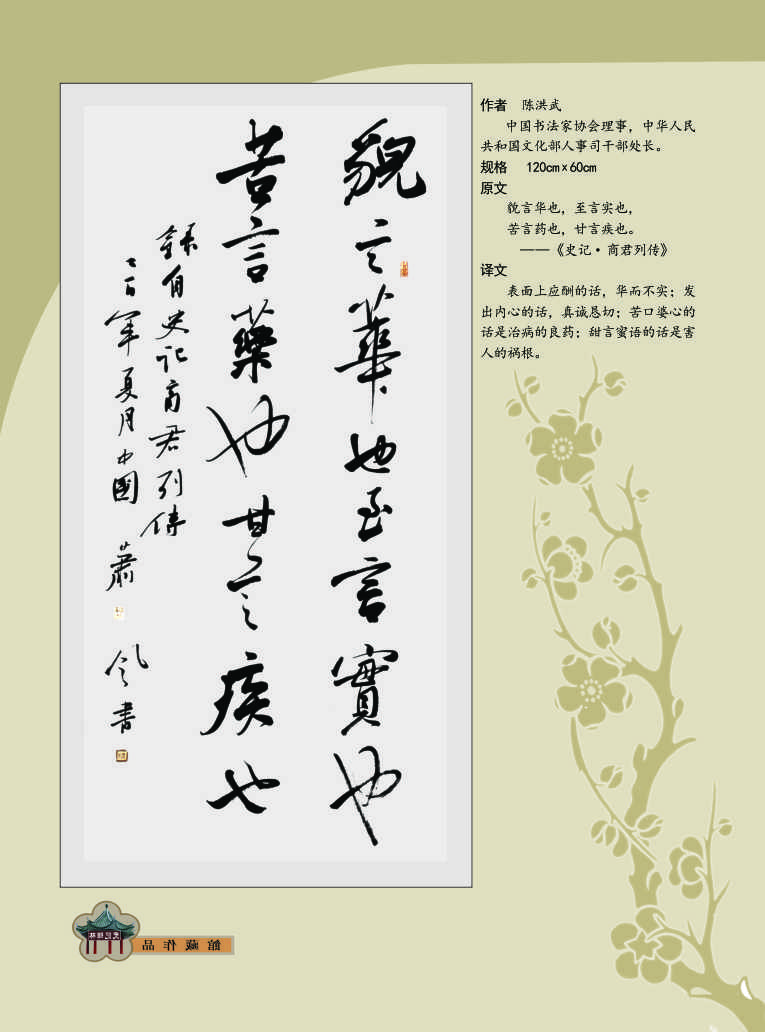 貌言華也至言實也
苦言藥也甘言疾也
錄自史记商君列傳
年夏月中國
蕭風書
作者 陈洪武
中国书法家协会理事，中华人民
共和国文化部人事司干部处长。
规格 120cm×60cm
原文
貌言华也，至言实也，
苦言药也，甘言疾也。
——《史记·商君列传》
译文
表面上应酬的话，华而不实；发
出内心的话，真诚恳切；苦口婆心的
话是治病的良药；甜言蜜语的话是害
人的祸根。
館藏作品